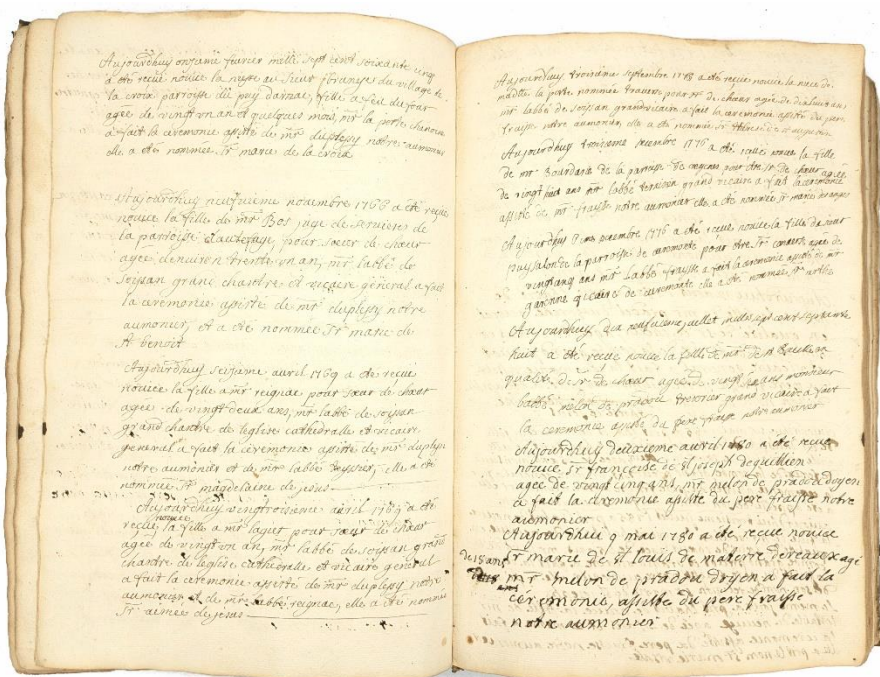 Aujourdhuy onzieme fevrier mille sept cent soixante cinq
a été recue novice la niepce au sieur du village de
la croix parroisse du puy darnac, fille a feu du four
agée de vingt un an et quelques mois, mr la porte chanoine
a fait la ceremonie assisté de mr duplessy notre aumonier
elle a été nommée Sr marie de la croix
Aujourdhuy neufvieme novembre 1766 a été reçue
novice la fille de mr Bos juge de servieres de
la parroisse dautefage, pour sœur de chœur
agée denviron trente un an, mr labbé de
soissan grand chantre et vicaire général a fait
la ceremonie assisté de mr duplessy notre
aumonier, et a été nommée Sr marie de
St benoit
Aujourdhuy seizieme avril 1769 a été recue
novice la fille a mr reignac pour sœur de chœur
agée de vingt deux ans, mr labbé de soissan
grand chantre de leglise cathedralle et vicaire
general a fait la ceremonie assisté de mr duplessy
notre aumonier et de mr labbé teyssier, elle a été
nommée Sr magdelaine de jesus
Aujourdhuy vingtroisieme avril 1769 a été
recue novice la fille a mr laguet pour sœur de chœur
agée de vingt un an, mr labbé de soissan grand
chantre de leglise cathedralle et vicaire general
a fait la ceremonie assisté de mr duplessy notre
aumonier et de mr labbé reignac, elle a été nommée
Sr aimée de jesus
Aujourdhuy troisieme septembre a été reçue novice la niece de
la porte nommée pour Sr de chœur agée de dixhuit an,
mr labbé de soissan grand vicaire a fait la ceremonie assisté du pere
fraysse notre aumonier, elle a été nommée Sr therese de St augustin
Aujourdhuy troisieme 1776 a été recue novice la fille
de mr Bourdaris de la paroisse de pour etre Sr de chœur agée
de vingt huit ans mr labbé grand vicaire a fait la ceremonie
assisté de mr fraisse notre aumonier elle a été nommée Sr marie
Aujourdhuy 1776 a été recue novice la fille du sieur
puyjalon de la parroisse de pour etre Sr agée de
vingt cinq ans mr labbé fraisse a fait la ceremonie assisté de mr
vicaire de elle a été nommée Sr marthe
Aujourdhuy dix neufvieme juillet mille sept cent septante
huit a été recue novice la fille de mr de St en
qualité de Sr de chœur agée de vingt ans monsieur
labbé melon de pradou grand vicaire a fait
la ceremonie assisté du pere fraisse notre aumonier
Aujourdhuy deuxieme avril 1780 a été recue
novice Sr françoise de St joseph deguillien
agée de vingt cinq ans, mr melon de pradou doyen
a fait la ceremonie assisté du pere fraisse notre
aumonier
Aujourdhui 9 mai 1780 a été recue novice
Sr marie de St louis de materre de reaux agé
de 18 ans
mr melon de pradou doyen a fait la
ceremonie, assisté du pere fraisse
notre aumonier